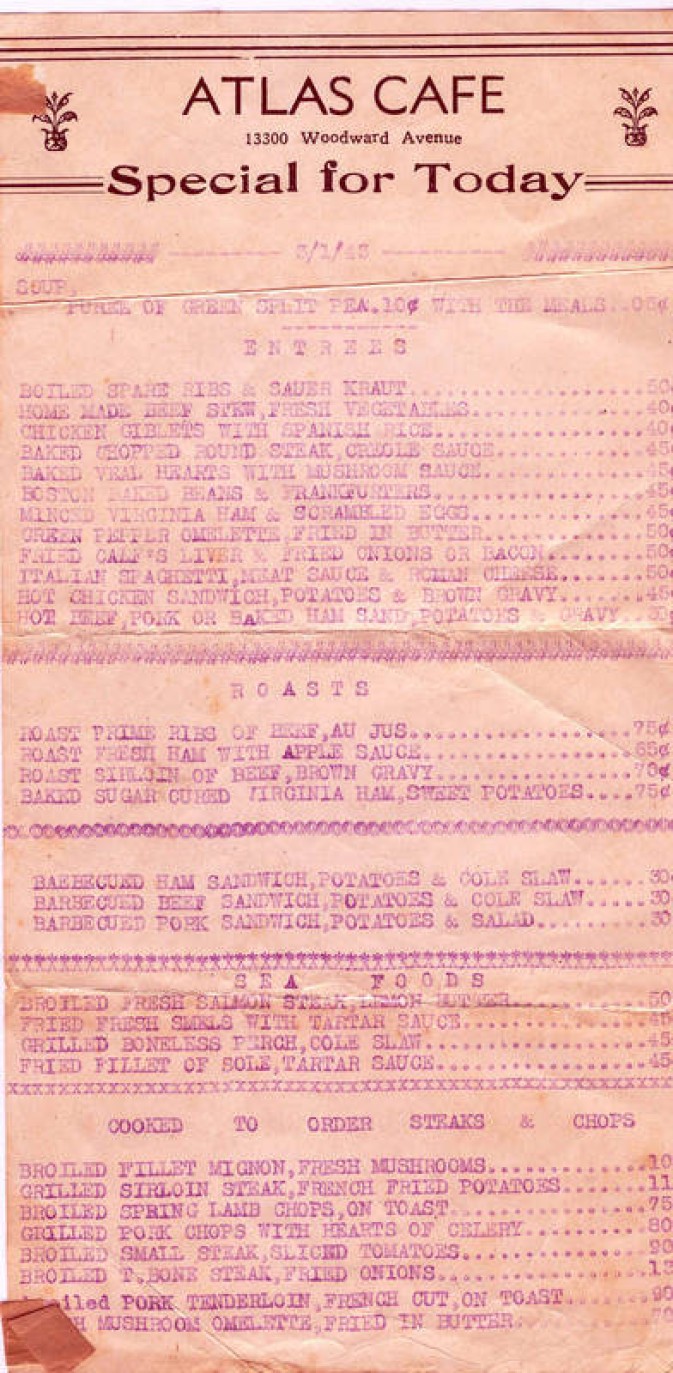 ATLAS CAFE
13300 Woodward Avenue
Special for Today
3/1/43
SOUP,
PUREE OF GREEN SPLIT PEA.10¢ WITH THE MEALS..05¢
ENTREES
BOILED SPARE RIBS & SAUER KRAUT....................50¢
HOME MADE BEEF STEW,FRESH VEGETABLES...............40¢
CHICKEN GIBLETS WITH SPANISH RICE..................40¢
BAKED CHOPPED ROUND STEAK,CREOLE SAUCE.............45¢
BAKED VEAL HEARTS WITH MUSHROOM SAUCE..............45¢
BOSTON BAKED BEANS & FRANKFURTERS..................45¢
MINCED VIRGINIA HAM & SCRAMBLED EGGS...............45¢
GREEN PEPPER OMELETTE,FRIED IN BUTTER..............50¢
FRIED CALF'S LIVER & FRIED ONIONS OR BACON.........50¢
ITALIAN SPAGHETTI,MEAT SAUCE & ROMAN CHEESE........50¢
HOT CHICKEN SANDWICH,POTATOES & BROWN GRAVY........45¢
HOT BEEF,PORK OR BAKED HAM SAND,POTATOES & GRAVY..30¢
ROASTS
ROAST PRIME RIBS OF BEEF,AU JUS....................75¢
ROAST FRESH HAM WITH APPLE SAUCE...................65¢
ROAST SIRLOIN OF BEEF,BROWN GRAVY..................70¢
BAKED SUGAR CURED VIRGINIA HAM,SWEET POTATOES....75¢
BARBECUED HAM SANDWICH,POTATOES & COLE SLAW......30¢
BARBECUED BEEF SANDWICH,POTATOES & COLE SLAW.....30
BARBECUED PORK SANDWICH,POTATOES & SALAD.........30
SEA FOODS
BROILED FRESH SALMON STEAK,LEMON BUTTER............50
FRIED FRESH SMELS WITH TARTAR SAUCE................45
GRILLED BONELESS PERCH,COLE SLAW...................45
FRIED FILLET OF SOLE,TARTAR SAUCE..................45
xxxxxxxxxxxxxxxxxxxxxxxxxxxxxxxxxxxxxxxxxxxxxxxxxxxx
COOKED TO ORDER STEAKS & CHOPS
BROILED FILLET MIGNON,FRESH MUSHROOMS..............10
GRILLED SIRLOIN STEAK,FRENCH FRIED POTATOES.......11
BROILED SPRING LAMB CHOPS,ON TOAST.................75
GRILLED PORK CHOPS WITH HEARTS OF CELERY...........80
BROILED SMALL STEAK,SLICED TOMATOES................90
BROILED T,BONE STEAK,FRIED ONIONS..................13
iled PORK TENDERLOIN,FRENCH CUT,ON TOAST.......90
H MUSHROOM OMELETTE,FRIED IN BUTTER............70